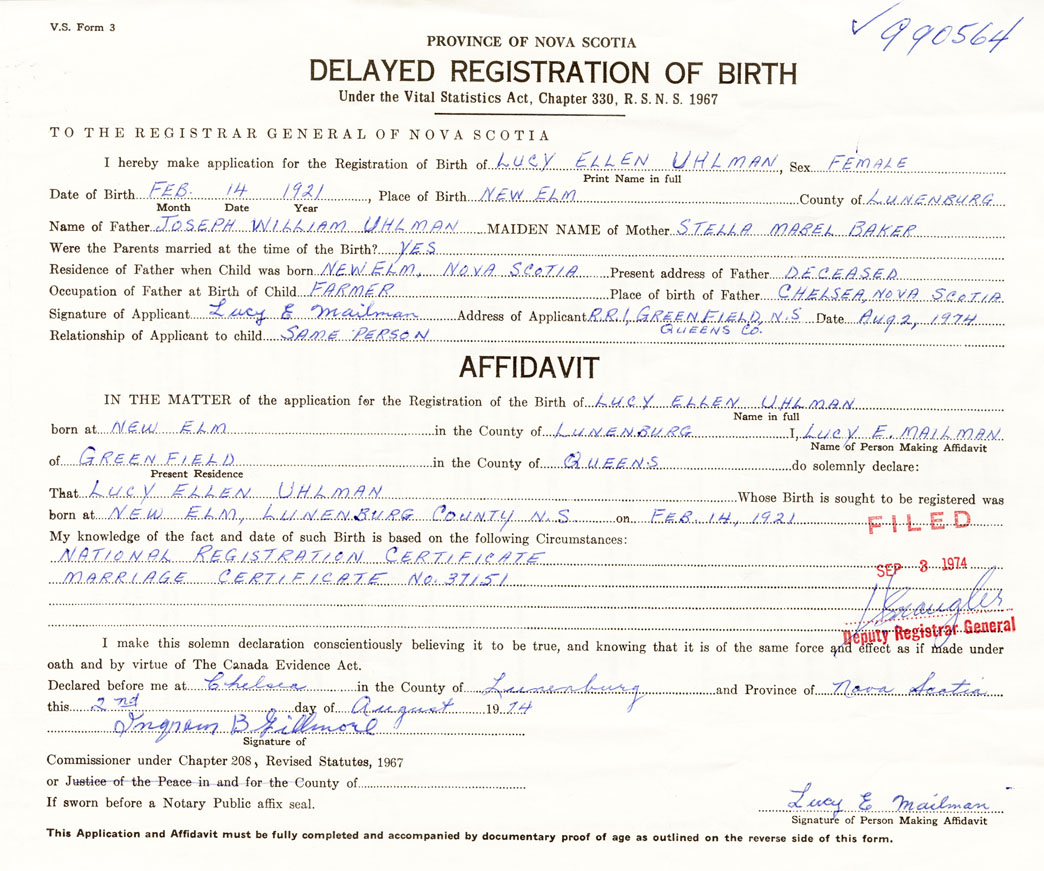 V.S. Form 3
✓990564
PROVINCE OF NOVA SCOTIA
DELAYED REGISTRATION OF BIRTH
Under the Vital Statistics Act, Chapter 330, R.S.N.S. 1967
TO THE REGISTRAR GENERAL OF NOVA SCOTIA
I hereby make application for the Registration of Birth of LUCY ELLEN UHLMAN, Sex FEMALE
Print Name in full
Date of Birth FEB. 14 1921, Place of Birth NEW ELM County of LUNENBURG
Month Date Year
Name of Father JOSEPH WILLIAM UHLMAN MAIDEN NAME of Mother STELLA MABEL BAKER
Were the Parents married at the time of the Birth? YES
Residence of Father when Child was born NEW ELM, NOVA SCOTIA Present address of Father DECEASED
Occupation of Father at Birth of Child FARMER Place of birth of Father CHELSEA, NOVA SCOTIA
Signature of Applicant Lucy E Mailman Address of Applicant R.R.1, GREENFIELD, N.S Date AUG 2, 1974
QUEENS CO.
Relationship of Applicant to child SAME PERSON
AFFIDAVIT
IN THE MATTER of the application for the Registration of the Birth of LUCY ELLEN UHLMAN
Name in full
born at NEW ELM in the County of LUNENBURG I, LUCY E. MAILMAN
Name of Person Making Affidavit
of GREENFIELD in the County of QUEENS do solemnly declare:
Present Residence
That LUCY ELLEN UHLMAN Whose Birth is sought to be registered was
born at NEW ELM, LUNENBURG COUNTY N.S on FEB. 14, 1921
FILED
My knowledge of the fact and date of such Birth is based on the following Circumstances:
NATIONAL REGISTRATION CERTIFICATE
SEP 3 1974
MARRIAGE CERTIFICATE NO. 37151
Deputy Registrar General
I make this solemn declaration conscientiously believing it to be true, and knowing that it is of the same force and effect as if made under
oath and by virtue of The Canada Evidence Act.
Declared before me at Chelsea in the County of Lunenburg and Province of Nova Scotia
this 2nd day of August 1974
Ingram B Gillmore
Signature of
Commissioner under Chapter 208, Revised Statutes, 1967
or Justice of the Peace in and for the County of
If sworn before a Notary Public affix seal.
Lucy E Mailman
Signature of Person Making Affidavit
This Application and Affidavit must be fully completed and accompanied by documentary proof of age as outlined on the reverse side of this form.